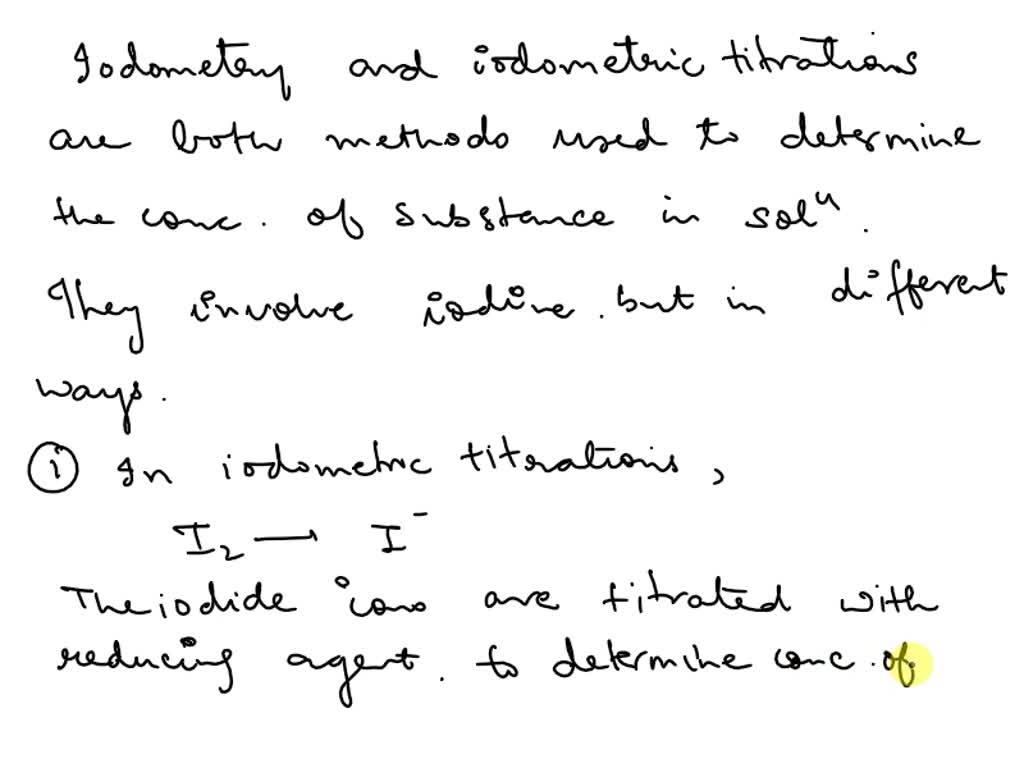 Iodometry and iodometric titrations
are both methods used to determine
the conc. of substance in solⁿ.
They involve iodine. but in different
ways.
① In iodometric titrations,
I₂ → I⁻
The iodide ions are titrated with
reducing agent. to determine conc. of